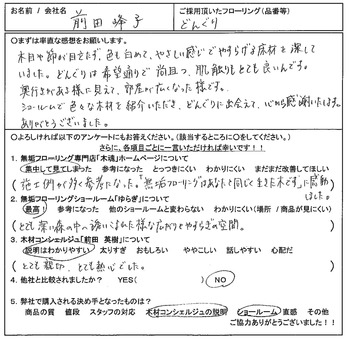 お名前 / 会社名 前田 峰子
ご採用頂いたフローリング(品番等) どんぐり
○まずは率直な感想をお願いします。
木目や節が目立たず、色も白めで、やさしい感じでやすらげる床材を探して
いました。どんぐりは希望通りで尚且つ、肌触りもとても良いんです。
奥行きがある様に見えて、部屋が広くなった様です。
ショールームで色々な木材を紹介いただき、どんぐりに出会えて、心から感謝いたします。
ありがとうございました。
○よろしければ以下のアンケートにもお答えください。(該当するところに○をしてください。)
さらに、各項目ごとに一言いただければ幸いです!!
1. 無垢フローリング専門店「木魂」ホームページについて
集中して見てしまった 参考になった とっつきにくい わかりにくい まだまだ改善してほしい
(施士例が多く参考になった。"無垢フローリングはあなたと同じく生きた木です"に感動しました。)
2. 無垢フローリングショールーム「ゆらぎ」について
最高! 参考になった 他のショールームと変わらない わかりにくい(場所 / 商品が見にくい)
(とても深い森の中へ誘いこんだ様な広がりとやすらぎの空間。)
3. 木材コンシェルジュ「前田 英樹」について
説明はわかりやすい 太りすぎ おもしろい ややこしい 話しやすい 心配だ
(とても親切、とても熱心でした。)
4. 他社と比較されましたか? YES( ) NO
5. 弊社で購入される決め手となったものは?
商品の質 値段 スタッフの対応 木材コンシェルジュの説明 ショールーム 直感 その他
ご協力ありがとうございました!!